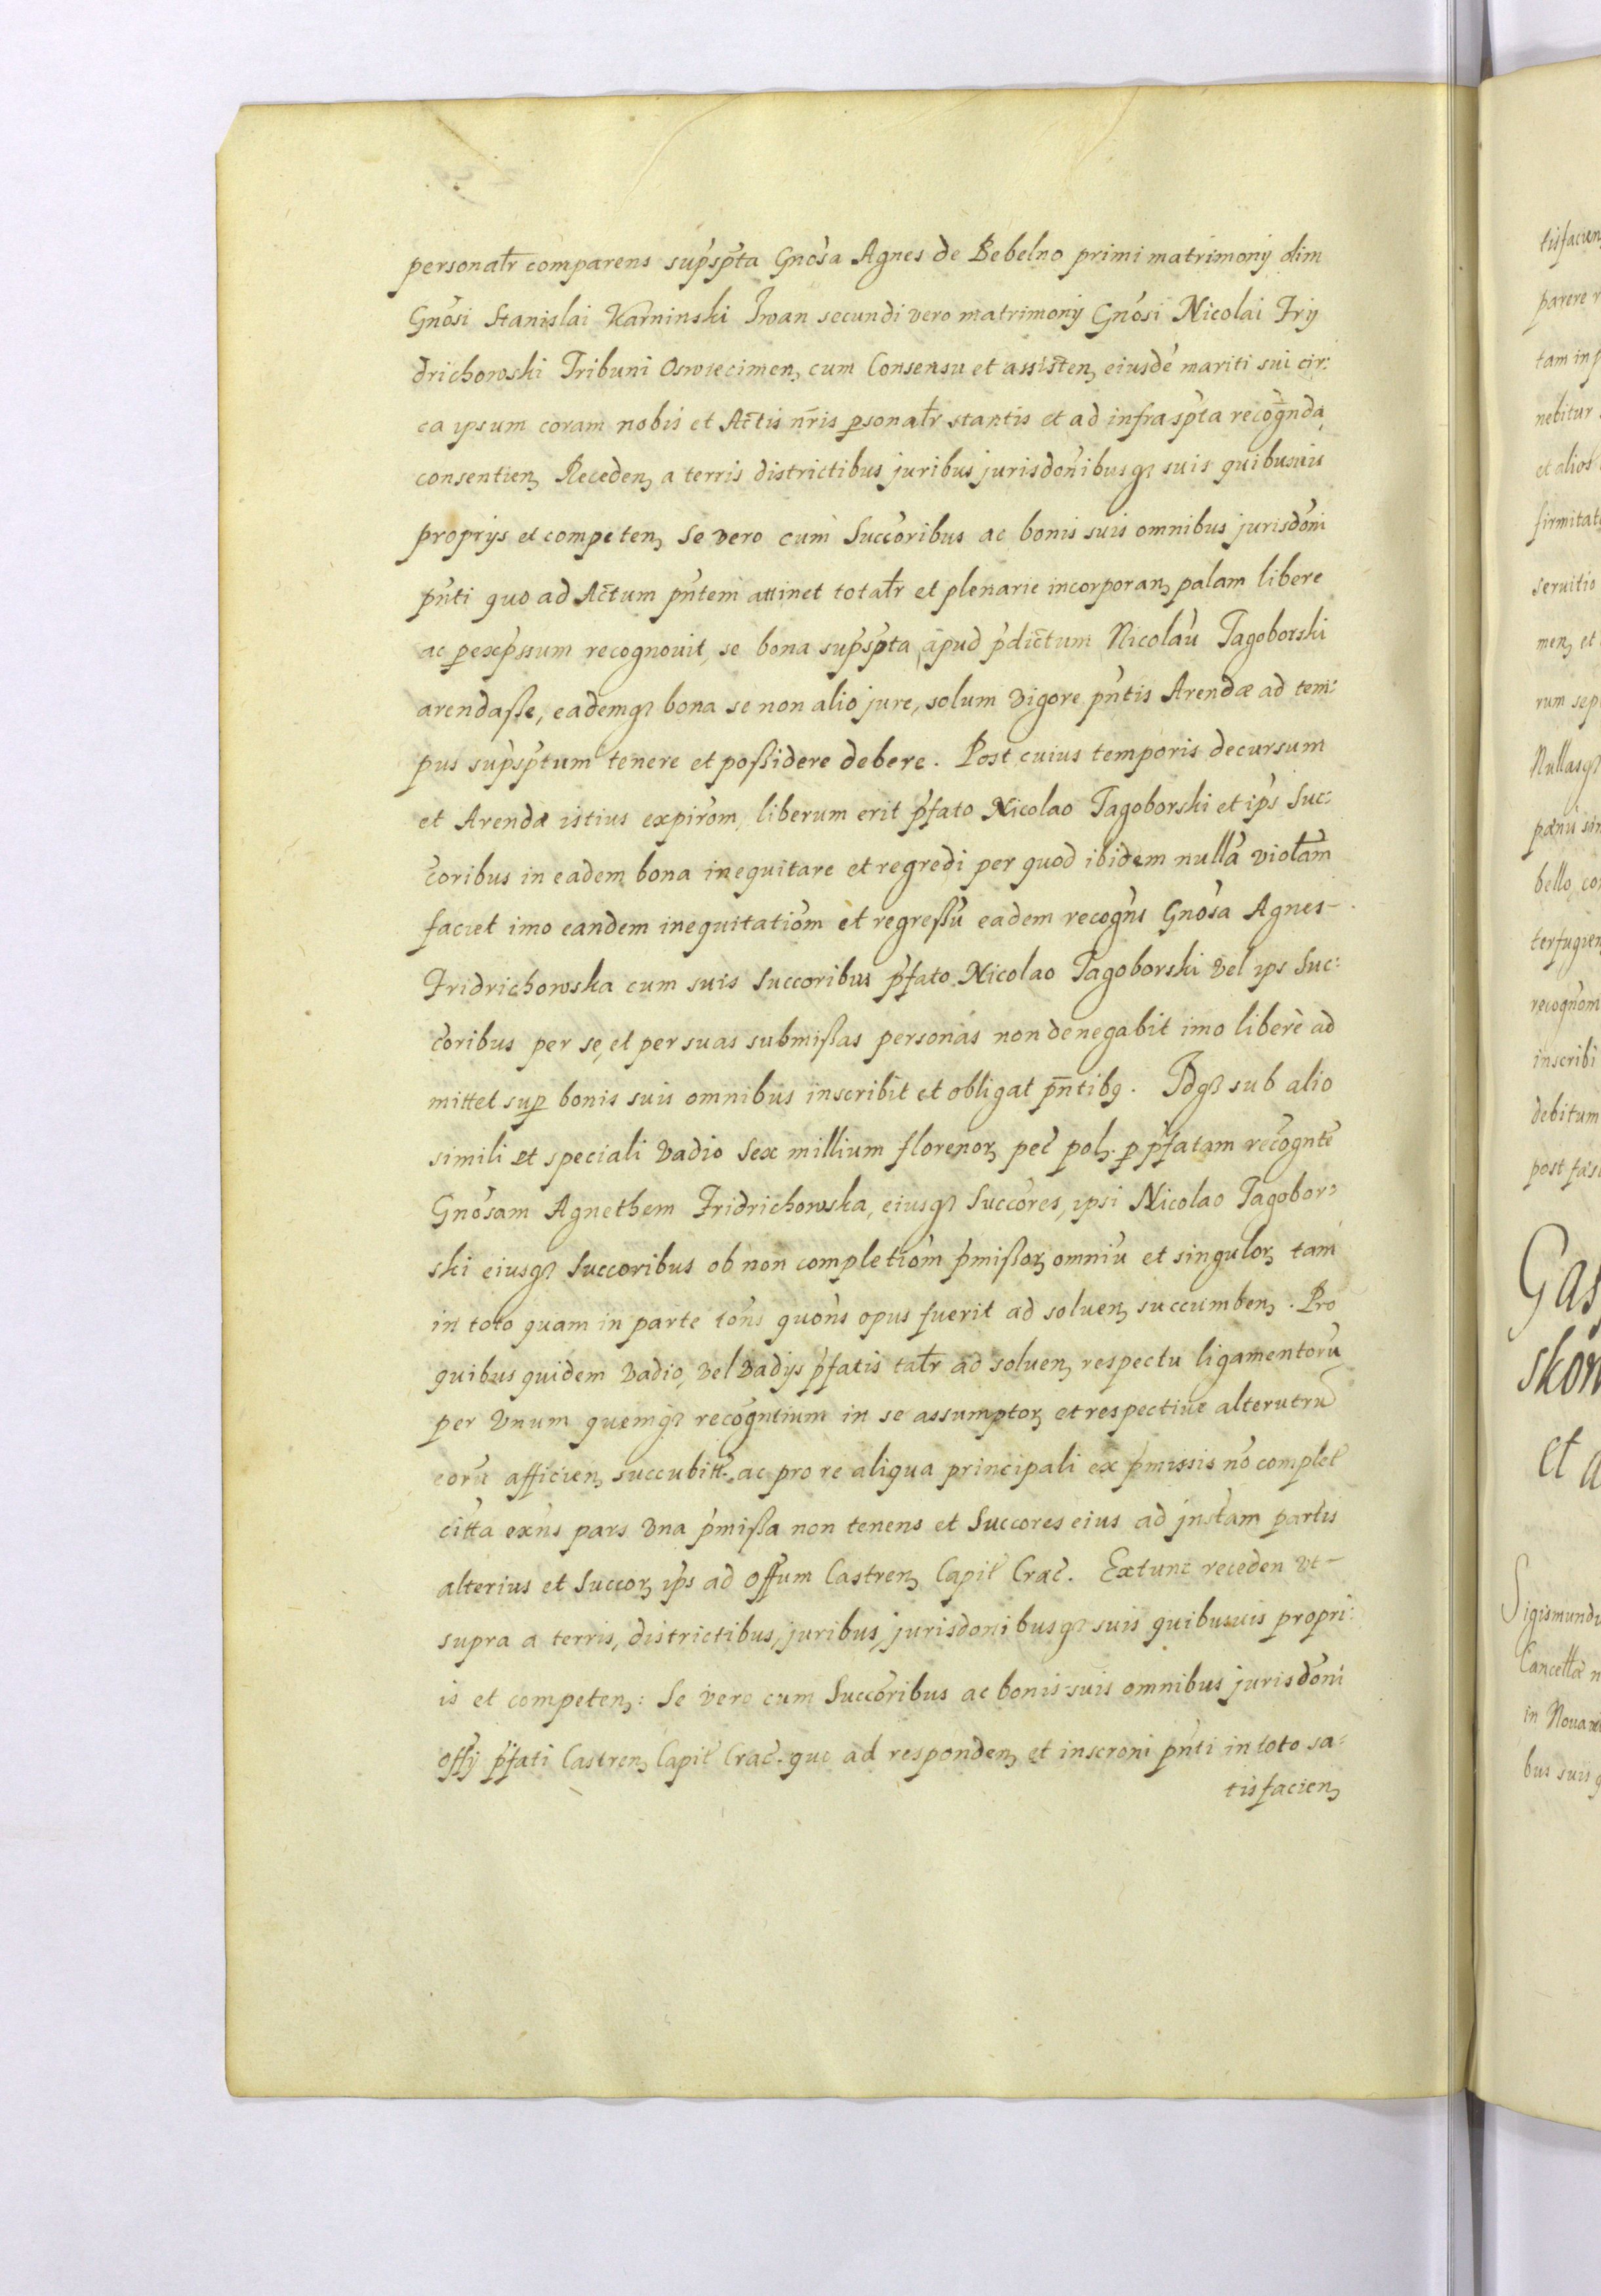 personalr comparens supspta Gnosa Agnes de Bebelno primi matrimonij olim
Gnosi Stanislai Karninski Iwan secundi vero matrimonij Gnosi Nicolai Frij
drichowski Tribuni Oswiecimen, cum Consensu et assisten, eiusde mariti sui cir:
ca ipsum coram nobis et Actis nris psonalr stantis et ad infraspta recognda,
consentien, Receden, a terris districtibus juribus jurisdonibusq suis quibusuis
proprijs et competen, Se vero cum Succoribus ac bonis suis omnibus jurisdoni
pnti quo ad Actum pntem attinet totalr et plenarie incorporan, palam libere
ac pexpssum recognouit, se bona supspta apud pdictum Nicolau Tagoborski
arendaße, eademq bona se non alio jure, solum vigore pntis Arendæ ad tem:
pus supsptum tenere et poßidere debere. Post cuius temporis decursum
et Arendæ istius expirom, liberum erit pfato Nicolao Tagoborski et ips Suc:
coribus in eadem bona inequitare et regredi per quod ibidem nulla violam
faciet imo eandem inequitatiom et regreßu eadem recogns Gnosa Agnes
Fridrichowska cum suis Succoribus pfato Nicolao Tagoborski vel ips Suc:
coribus per se, et per suas submißas personas non denegabit imo liberè ad
mittet sup bonis suis omnibus inscribit et obligat pntibq. Idq sub alio
simili et speciali vadio Sex millium florenor, pec pol,. p pfatam recognte
Gnosam Agnethem Fridrichowska, eiusq Succores, ipsi Nicolao Tagobor:
ski eiusq Succoribus ob non completiom pmißor, omniu et singulor, tam
in toto quam in parte tons quons opus fuerit ad soluen, succumben,. Pro
quibus quidem vadio, vel vadijs pfatis talr ad soluen, respectu ligamentoru
per vnum quemq recogntium in se assumptor, et respectiue alterutru
eoru afficien, succubitt. ac pro re aliqua principali ex pmissis no complet
citta exns pars vna pmißa non tenens et Succores eius ad jnstam partis
alterius et Succor, ips ad offum Castren, Capit Crac. Extunc receden vt
supra a terris, districtibus, juribus, jurisdonibusq suis quibusuis propri:
is et competen,: Se vero cum Succoribus ac bonis suis omnibus jurisdoni
offij pfati Castren, Capit Crac. quo ad responden, et inscroni pnti in toto sa:
tisfacien,